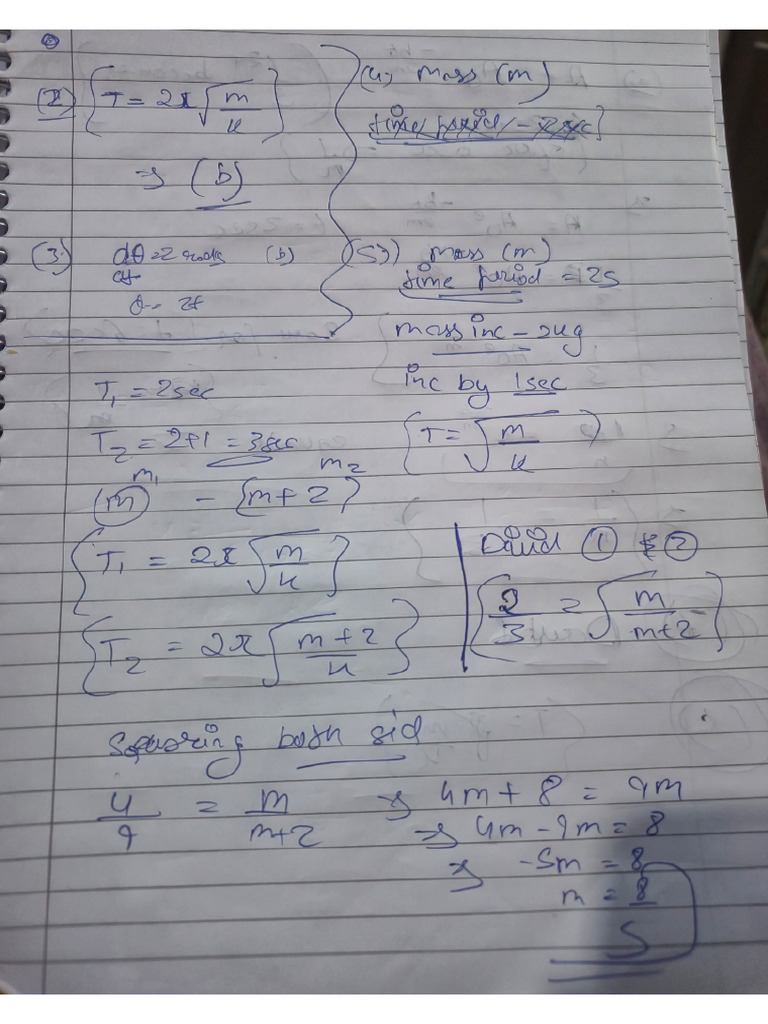 (2) {T = 2π√(m/k)}
⇒ (b)
(3) dθ/dt = 2 rads (b)
θ = 2t
(4) mass (m)
time period - 2 sec
(5) mass (m)
time period = 2s
mass inc - 2kg
inc by 1sec
T₁ = 2sec
T₂ = 2+1 = 3sec
{T = √(m/k)}
m₁ m₂
(m) - {m+2}
{T₁ = 2π√(m/k)}
{T₂ = 2π√((m+2)/k)}
Divid ① & ②
{2/3 = √(m/(m+2))}
Squaring both sid
4/9 = m/(m+2) ⇒ 4m + 8 = 9m
⇒ 4m - 9m = 8
⇒ -5m = 8
m = 8/5